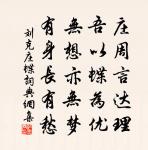 庄周言达理
吾以蝶为优
无想亦无梦
有身长有愁
刘克庄蝶词典网集